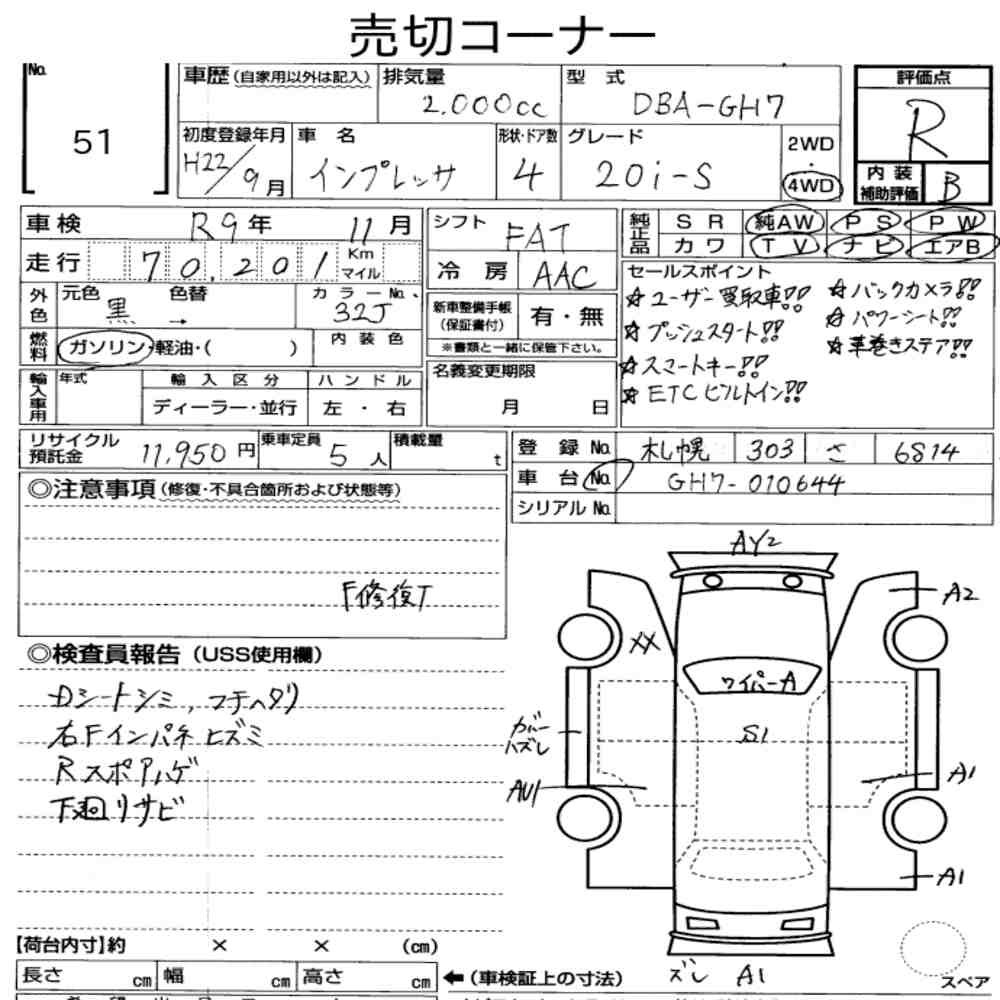 売切コーナー
No. 51
車歴(自家用以外は記入)
排気量 2.000cc
型式 DBA-GH7
評価点 R
初度登録年月 H22/9月
車名 インプレッサ
形状・ドア数 4
グレード 20i-S
2WD・4WD
内装補助評価 B
車検 R9年 11月
シフト FAT
純正品 SR 純AW PS PW
カワ TV ナビ エアB
走行 70,201 Km マイル
冷房 AAC
セールスポイント
☆ユーザー買取車!!
☆プッシュスタート!!
☆スマートキー!!
☆ETCビルトイン!!
☆バックカメラ!!
☆パワーシート!!
☆革巻きステア!!
外色 元色 黒 → 色替
カラーNo. 32J
新車整備手帳(保証書付) 有・無
※書類と一緒に保管下さい。
燃料 ガソリン・軽油・( )
内装色
名義変更期限
月 日
輸入車用 年式 輸入区分 ハンドル
ディーラー・並行 左・右
リサイクル預託金 11,950円
乗車定員 5人
積載量 t
登録No. 札幌 303 さ 6814
車台No. GH7-010644
シリアルNo.
◎注意事項(修復・不具合箇所および状態等)
F修復T
◎検査員報告(USS使用欄)
Dシートシミ,フチヘタリ
右Fインパネヒズミ
Rスポアハゲ
下廻リサビ
AY2
A2
XX
ワイパーA
S1
カバーハズレ
AU1
A1
A1
ズレ A1
スペア
【荷台内寸】約 × × (cm)
長さ cm 幅 cm 高さ cm
←(車検証上の寸法)